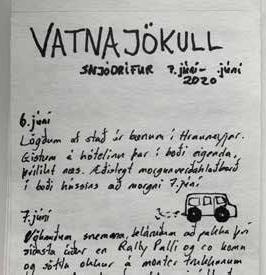 VATNAJÖKULL
SNJÓDRÍFUR 7. júní - .júní
2020
6. júní
Lögðum af stað úr bænum í Hrauneyjar.
Gistum á hótelinu þar í boði eigenda,
þvílíkt næs. Æðislegt morgunverðahlaðborð
í boði hússins að morgni 7. júní
7. júní
Vöknuðum snemma, kláruðum að pakka því
síðasta áður en Rally Palli og co komu
og sóttu okkur á monster trukkunum